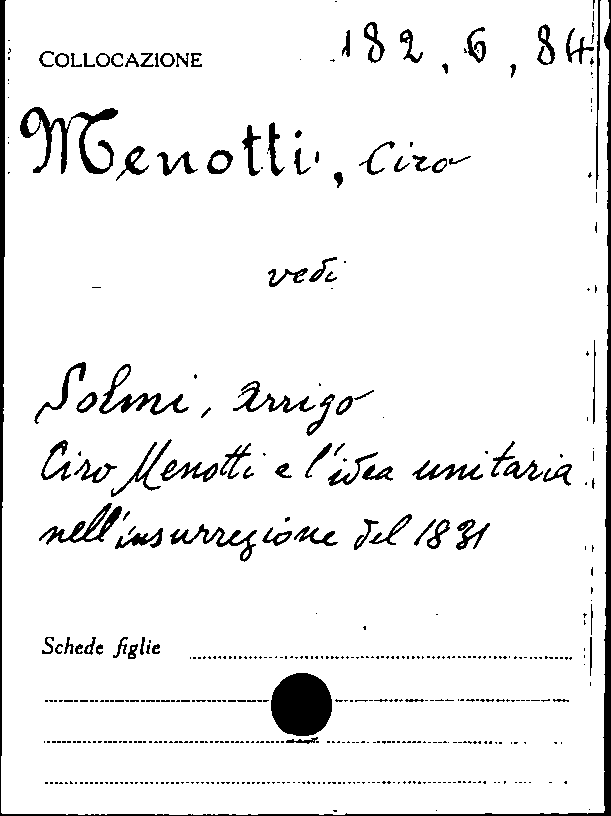 COLLOCAZIONE 182, 6, 84
Menotti, Ciro
vedi
Solmi, Arrigo
Ciro Menotti e l'idea unitaria
nell'insurrezione del 1831
Schede figlie